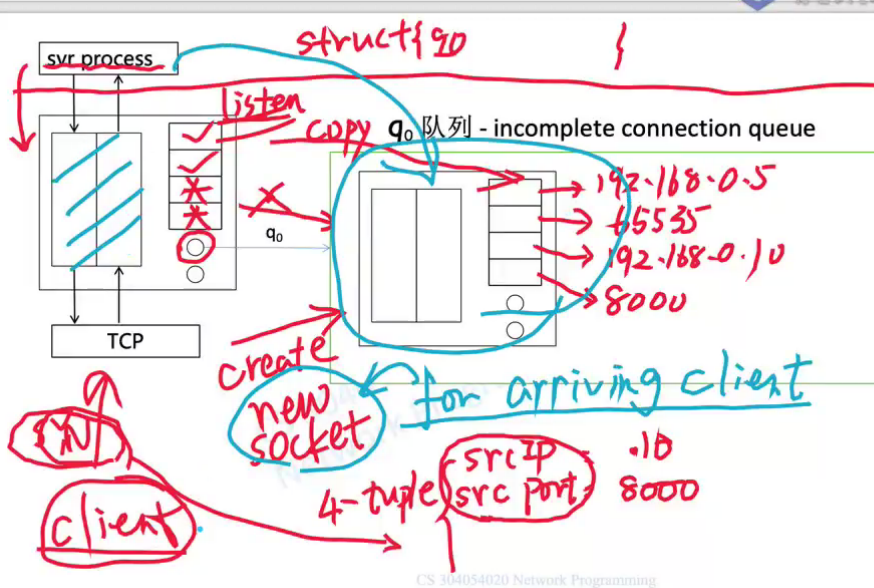 struct{q0 }
svr process
listen
copy q₀ 队列 - incomplete connection queue
192.168.0.5
65535
q₀
192.168.0.10
8000
TCP
create
new
socket
for arriving client
SYN
src IP .10
4-tuple src port 8000
client
CS 304054020 Network Programming